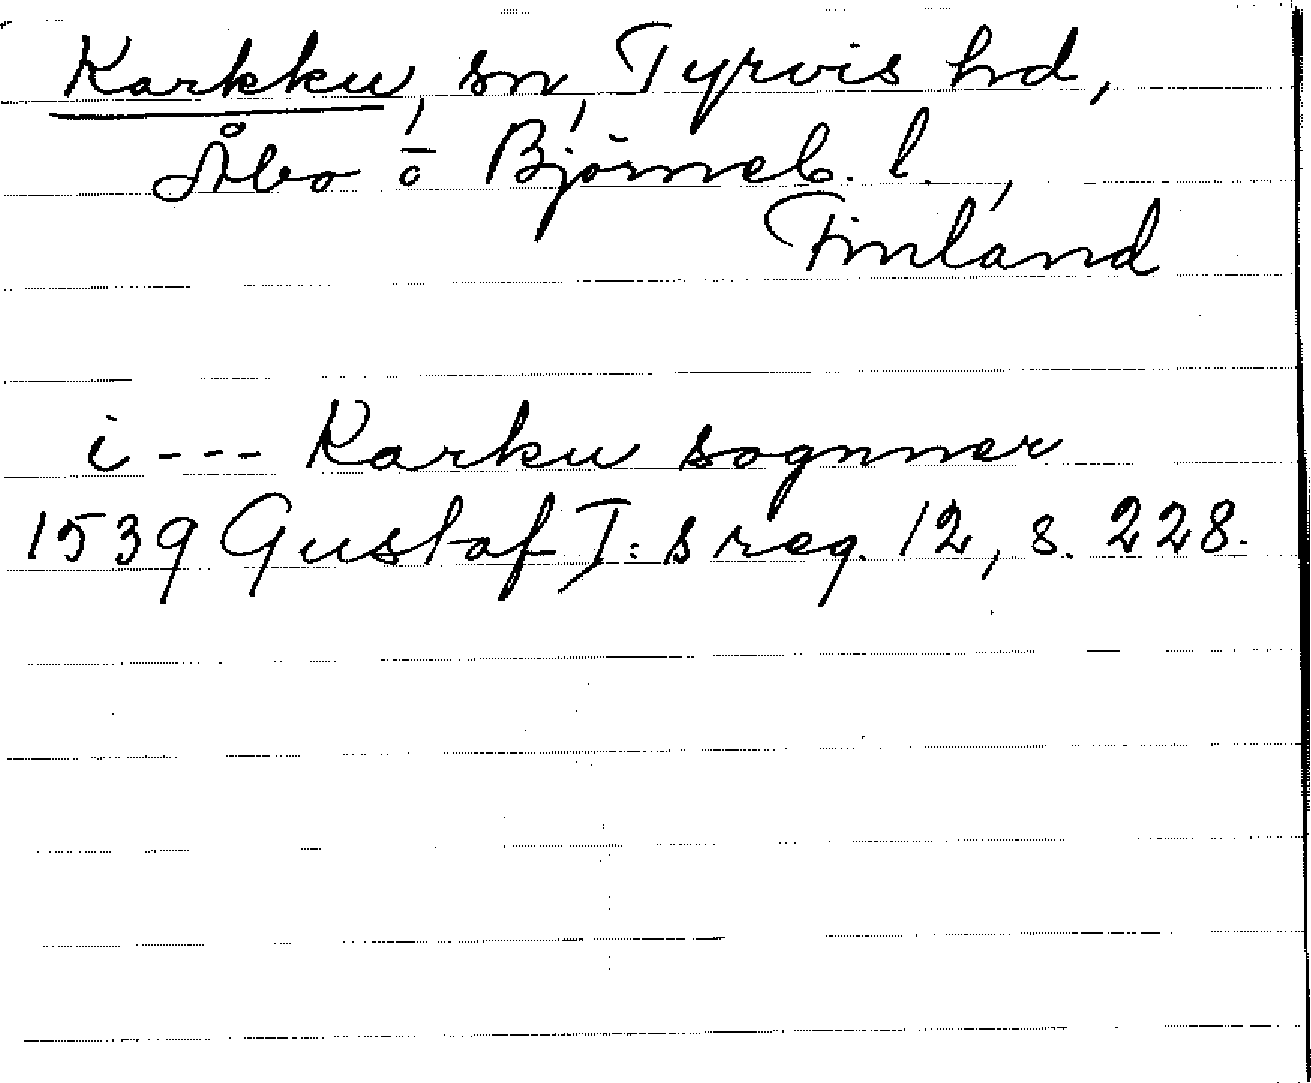 Karkku, sn, Tyrvis hd,
Åbo o Björneb. l.,
Finland
i --- Karku sognner
1539 Gustaf I:s reg. 12, s. 228.